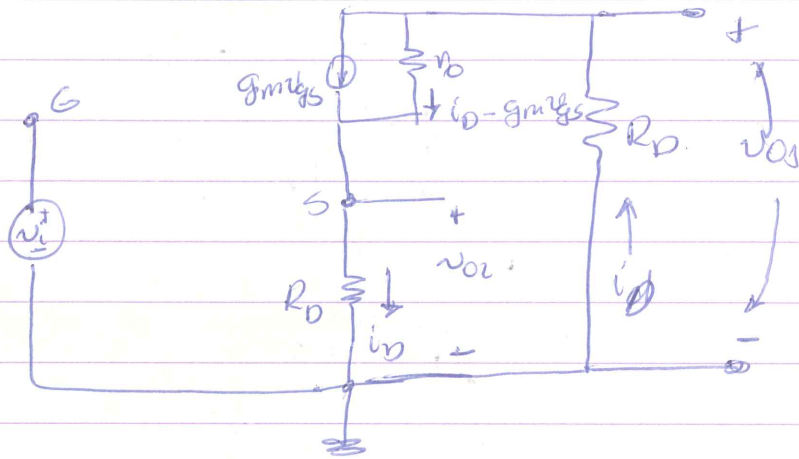 +
gmvgs
ro
iD - gmvgs
G
RD
vO1
S
+
vi
+
-
vO2
RD
iD
iD
-
-